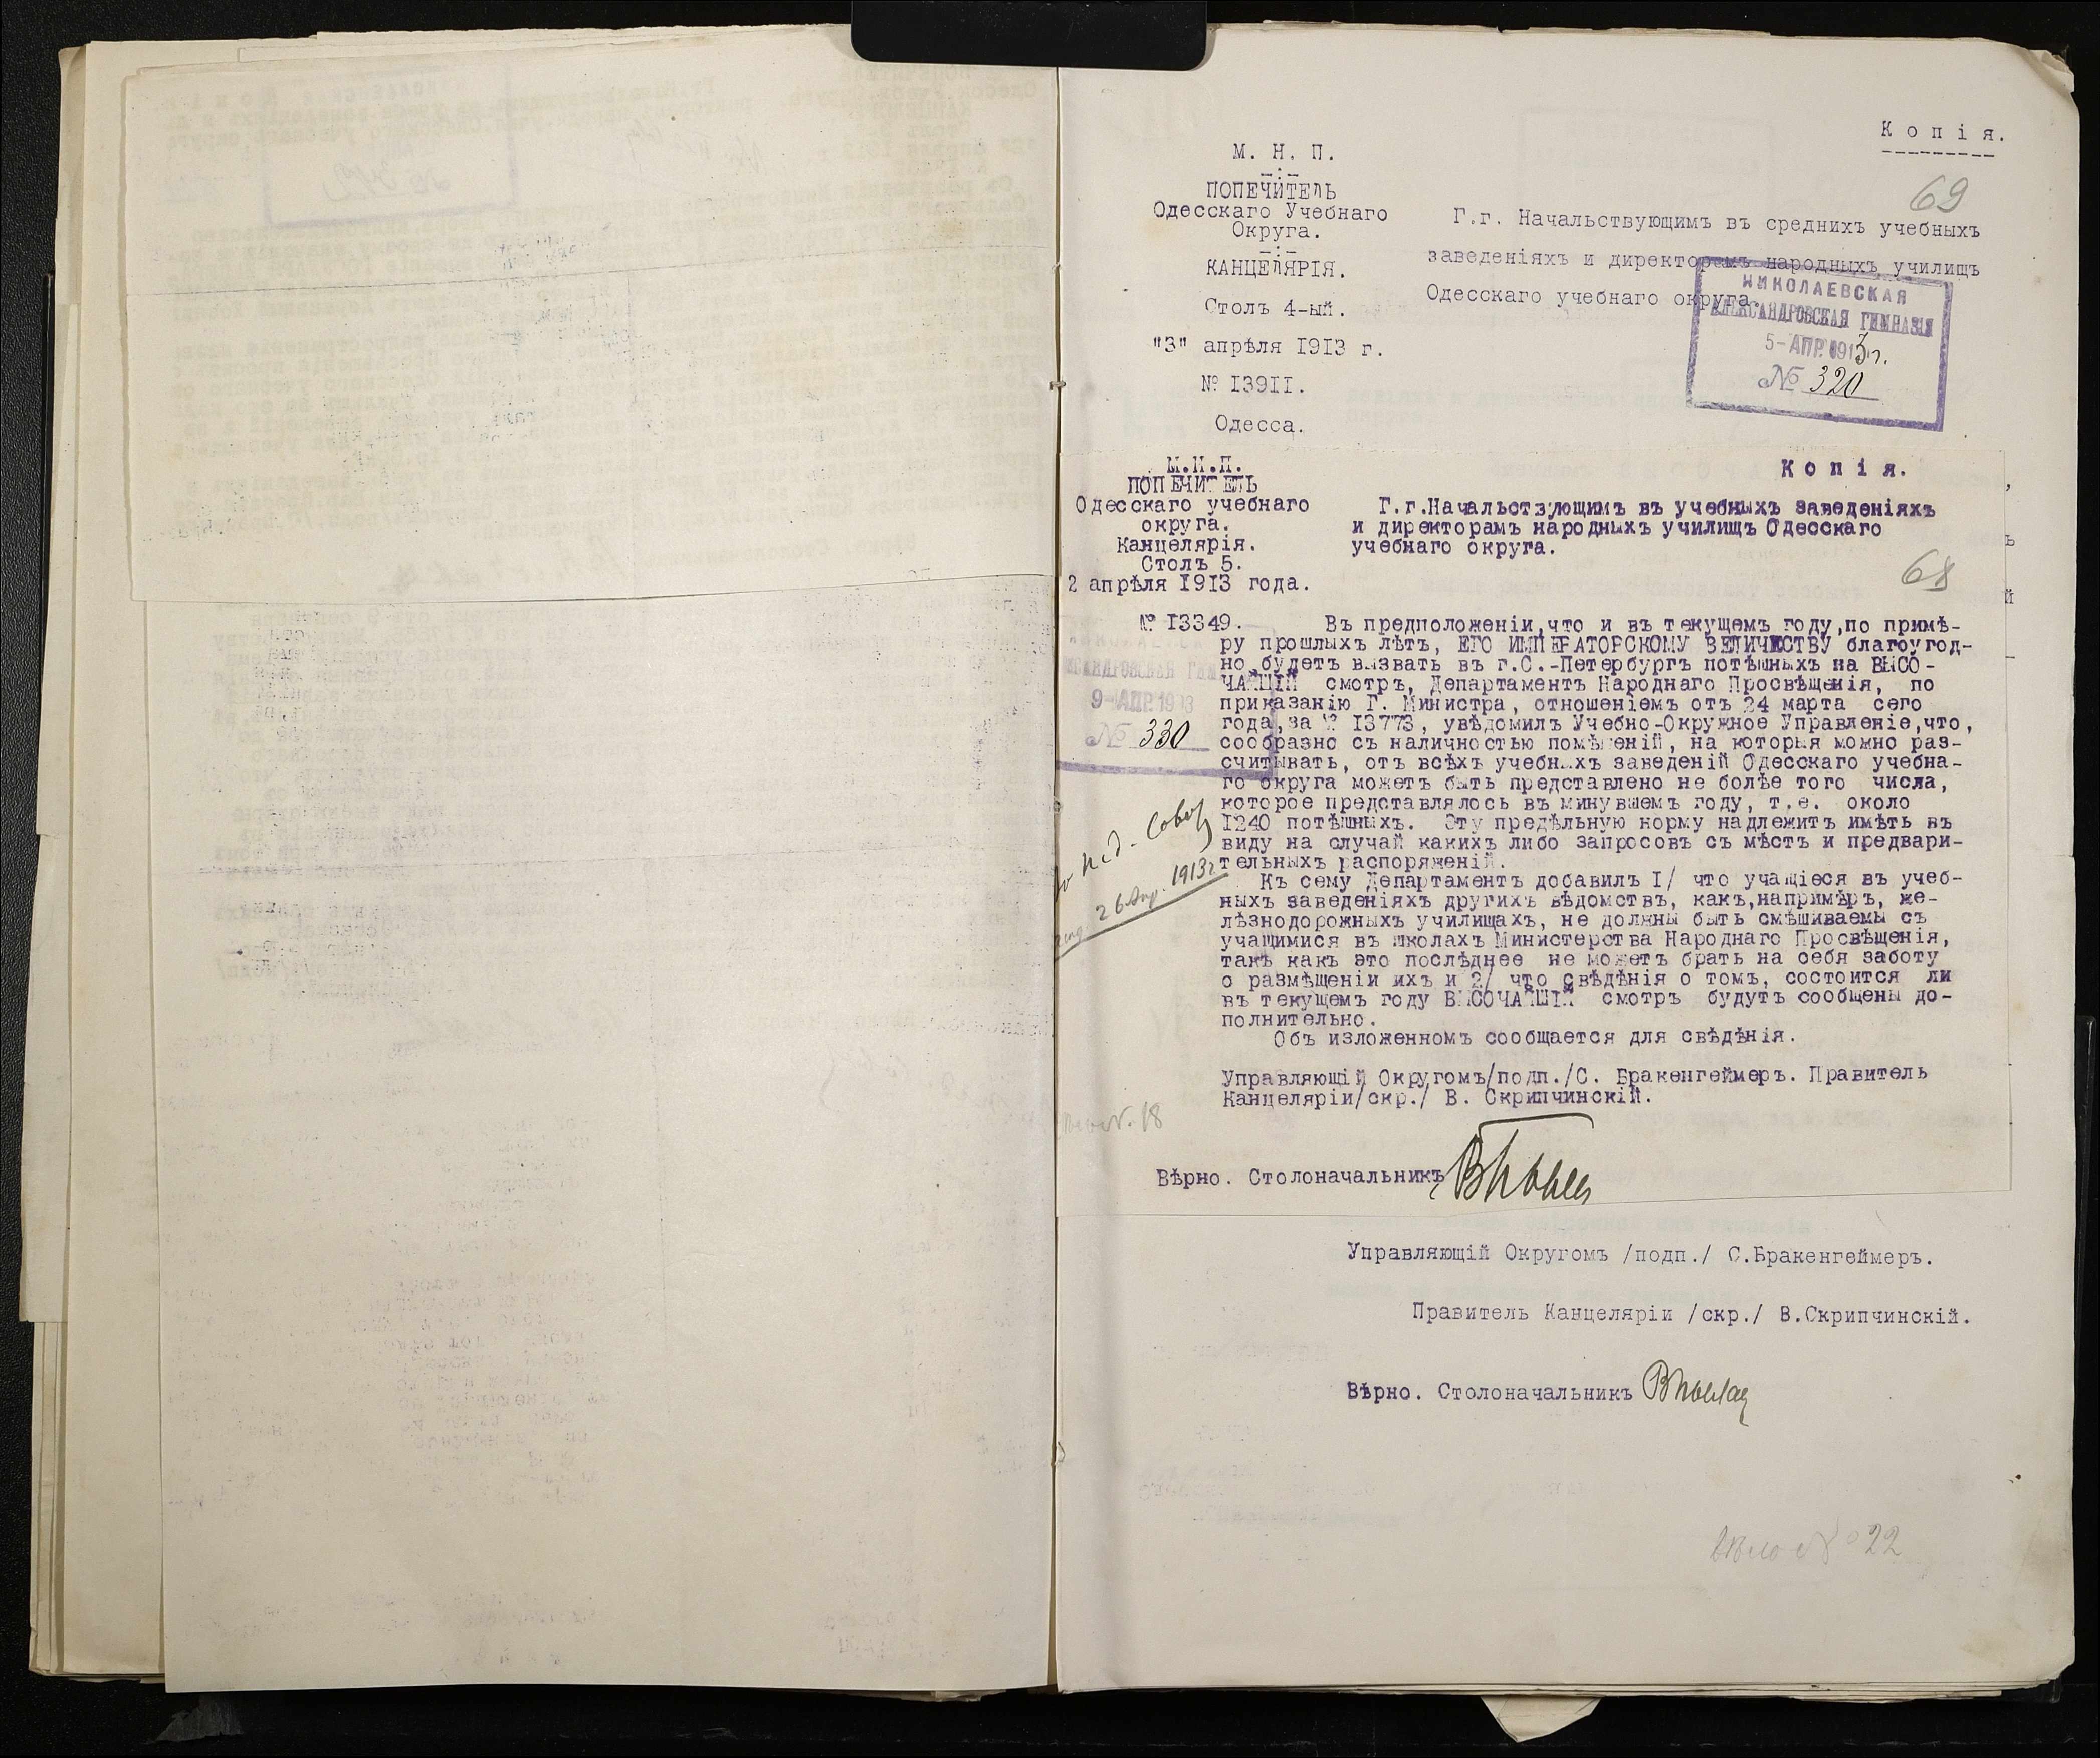 Копія.
69
М. Н. П.
ПОПЕЧИТЕЛЬ
Одесскаго Учебнаго
Округа.
КАНЦЕЛЯРІЯ.
Столъ 4-ый.
"3" апрѣля 1913 г.
№ 13911.
Одесса.
Г.г. Начальствующимъ въ среднихъ учебныхъ
заведеніяхъ и директорамъ народныхъ училищъ
Одесскаго учебнаго округа.
НИКОЛАЕВСКАЯ
АЛЕКСАНДРОВСКАЯ ГИМНАЗІЯ
5-АПР. 1913 г.
№ 320
М.Н.П.
ПОПЕЧИТЕЛЬ
Одесскаго учебнаго
округа.
Канцелярія.
Столъ 5.
2 апрѣля 1913 года.
№ 13349.
Копія.
Г.г.Начальствующимъ въ учебныхъ заведеніяхъ
и директорамъ народныхъ училищъ Одесскаго
учебнаго округа.
68
9-АПР.1913
№ 330
Въ предположеніи,что и въ текущемъ году,по примѣ-
ру прошлыхъ лѣтъ, ЕГО ИМПЕРАТОРСКОМУ ВЕЛИЧЕСТВУ благоугод-
но будетъ вызвать въ г.С.-Петербургъ потѣшныхъ на ВЫСО-
ЧАЙШІЙ смотръ, Департаментъ Народнаго Просвѣщенія, по
приказанію Г. Министра, отношеніемъ отъ 24 марта сего
года,за № 13773, увѣдомилъ Учебно-Окружное Управленіе,что,
сообразно съ наличностью помѣщеній, на которыя можно раз-
считывать, отъ всѣхъ учебныхъ заведеній Одесскаго учебна-
го округа можетъ быть представлено не болѣе того числа,
которое представлялось въ минувшемъ году, т.е. около
1240 потѣшныхъ. Эту предѣльную норму надлежитъ имѣть въ
виду на случай какихъ либо запросовъ съ мѣстъ и предвари-
тельныхъ распоряженій.
Къ сему Департаментъ добавилъ 1/ что учащіеся въ учеб-
ныхъ заведеніяхъ другихъ вѣдомствъ, какъ,напримѣръ, же-
лѣзнодорожныхъ училищахъ, не должны быть смѣшиваемы съ
учащимися въ школахъ Министерства Народнаго Просвѣщенія,
такъ какъ это послѣднее не можетъ брать на себя заботу
о размѣщеніи ихъ и 2/ что свѣдѣнія о томъ, состоится ли
въ текущемъ году ВЫСОЧАЙШІЙ смотръ будутъ сообщены до-
полнительно.
Объ изложенномъ сообщается для свѣдѣнія.
26 Апр. 1913 г.
Управляющій Округомъ/подп./С. Бракенгеймеръ. Правитель
Канцеляріи/скр./ В. Скрипчинскій.
Вѣрно. Столоначальникъ
Управляющій Округомъ /подп./ С.Бракенгеймеръ.
Правитель Канцеляріи /скр./ В.Скрипчинскій.
Вѣрно. Столоначальникъ
22